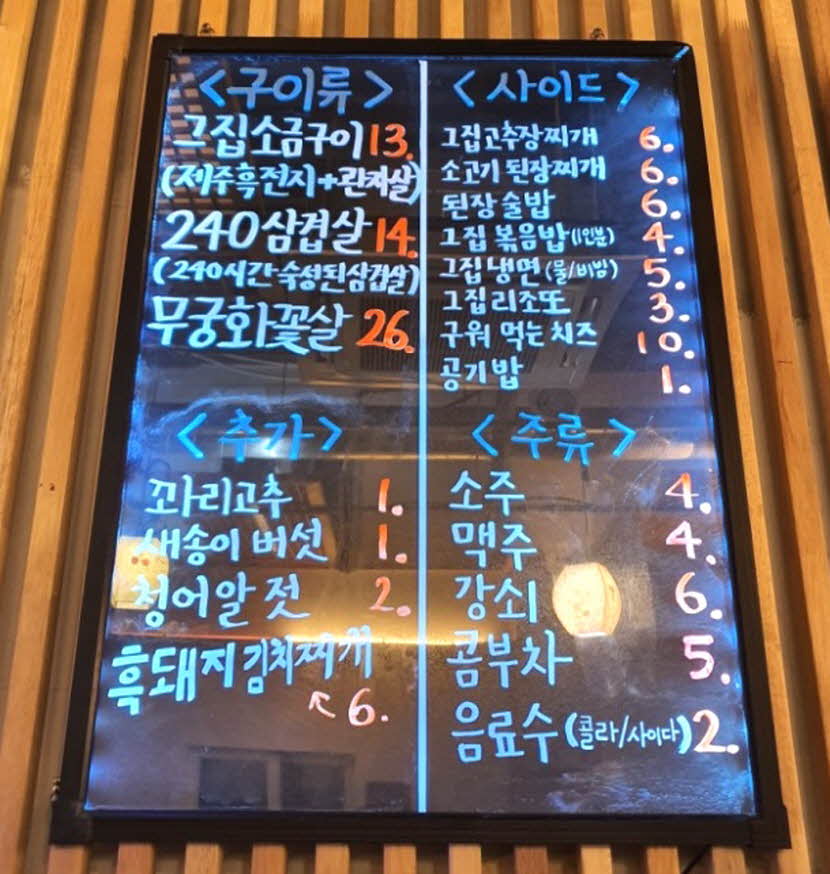 <구이류>
그집소금구이 13.
(제주흑전지+관자살)
240삼겹살 14.
(240시간 숙성된삼겹살)
무궁화꽃살 26.
<추가>
꽈리고추 1.
새송이 버섯 1.
청어알 젓 2.
흑돼지 김치찌개
↖ 6.
<사이드>
그집고추장찌개 6.
소고기 된장찌개 6.
된장 술밥 6.
그집 볶음밥 (1인분) 4.
그집 냉면 (물/비빔) 5.
그집리조또 3.
구워 먹는 치즈 10.
공기밥 1.
<주류>
소주 4.
맥주 4.
강쇠 6.
콤부차 5.
음료수 (콜라/사이다) 2.